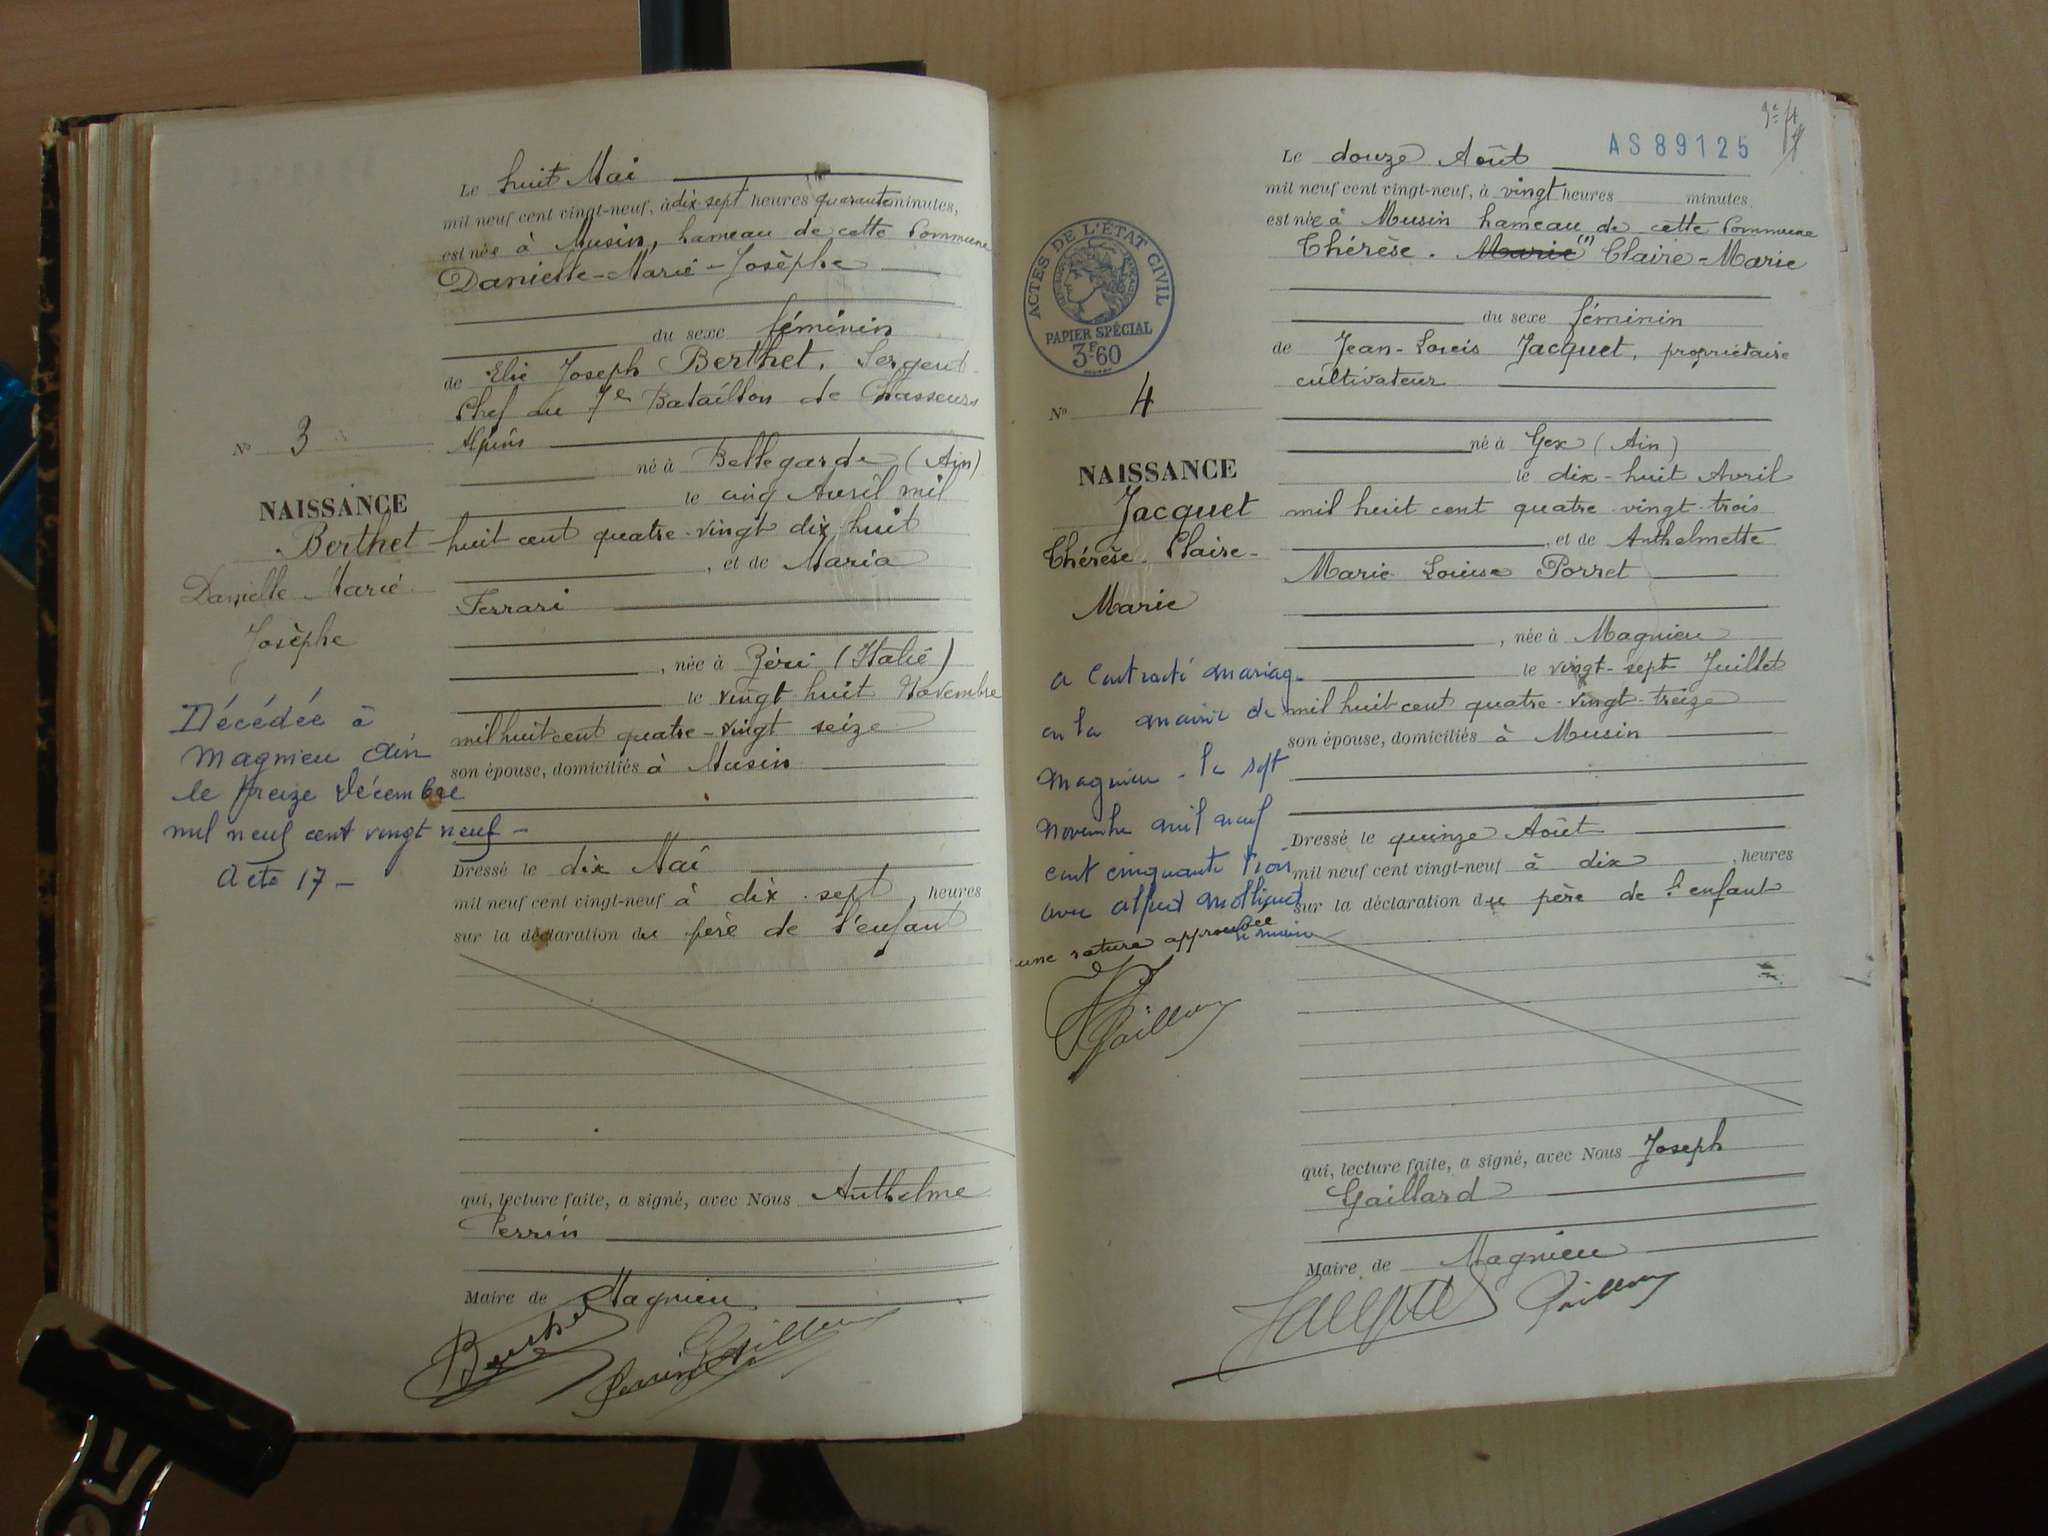 Le huit Mai
mil neuf cent vingt-neuf, à dix-sept heures quarante minutes,
est née à Musin, hameau de cette Commune
Danielle-Marie-Josèphe
du sexe féminin
de Elie Joseph Berthet, Sergent-
Chef au 7e Bataillon de Chasseurs
Alpins
né à Bellegarde (Ain)
le cinq Avril mil
huit cent quatre-vingt dix-huit
, et de Maria
Ferrari
, née à Zéri (Italie)
le vingt-huit Novembre
mil huit cent quatre-vingt seize
son épouse, domiciliés à Musin
Dressé le dix Mai
mil neuf cent vingt-neuf à dix-sept, heures
sur la déclaration du père de l'enfant
qui, lecture faite, a signé, avec Nous Anthelme
Perrin
Maire de Magnieu
Berthet
Perrin
N° 3
NAISSANCE
Berthet
Danielle Marie
Josèphe
Décédée à
Magnieu Ain
le treize Décembre
mil neuf cent vingt neuf -
Acte 17 -
AS89125
Le douze Août
mil neuf cent vingt-neuf, à vingt heures minutes
est née à Musin hameau de cette Commune
Thérèse. Marie (1) Claire-Marie
du sexe féminin
de Jean-Louis Jacquet, propriétaire
cultivateur
né à Gex (Ain)
le dix-huit Avril
mil huit cent quatre-vingt-trois
, et de Anthelmette
Marie Louise Porret
, née à Magnieu
le vingt-sept Juillet
mil huit cent quatre-vingt-treize
son épouse, domiciliés à Musin
Dressé le quinze Août
mil neuf cent vingt-neuf à dix, heures
sur la déclaration du père de l'enfant
qui, lecture faite, a signé, avec Nous Joseph
Gaillard
Maire de Magnieu
Jacquet
Gaillard
ACTES DE L'ÉTAT CIVIL
PAPIER SPÉCIAL
3F60
N° 4
NAISSANCE
Jacquet
Thérèse-Claire-
Marie
a contracté mariage
en la mairie de
Magnieu - le sept
novembre mil neuf
cent cinquante trois
avec
une rature approuvée
Gaillard